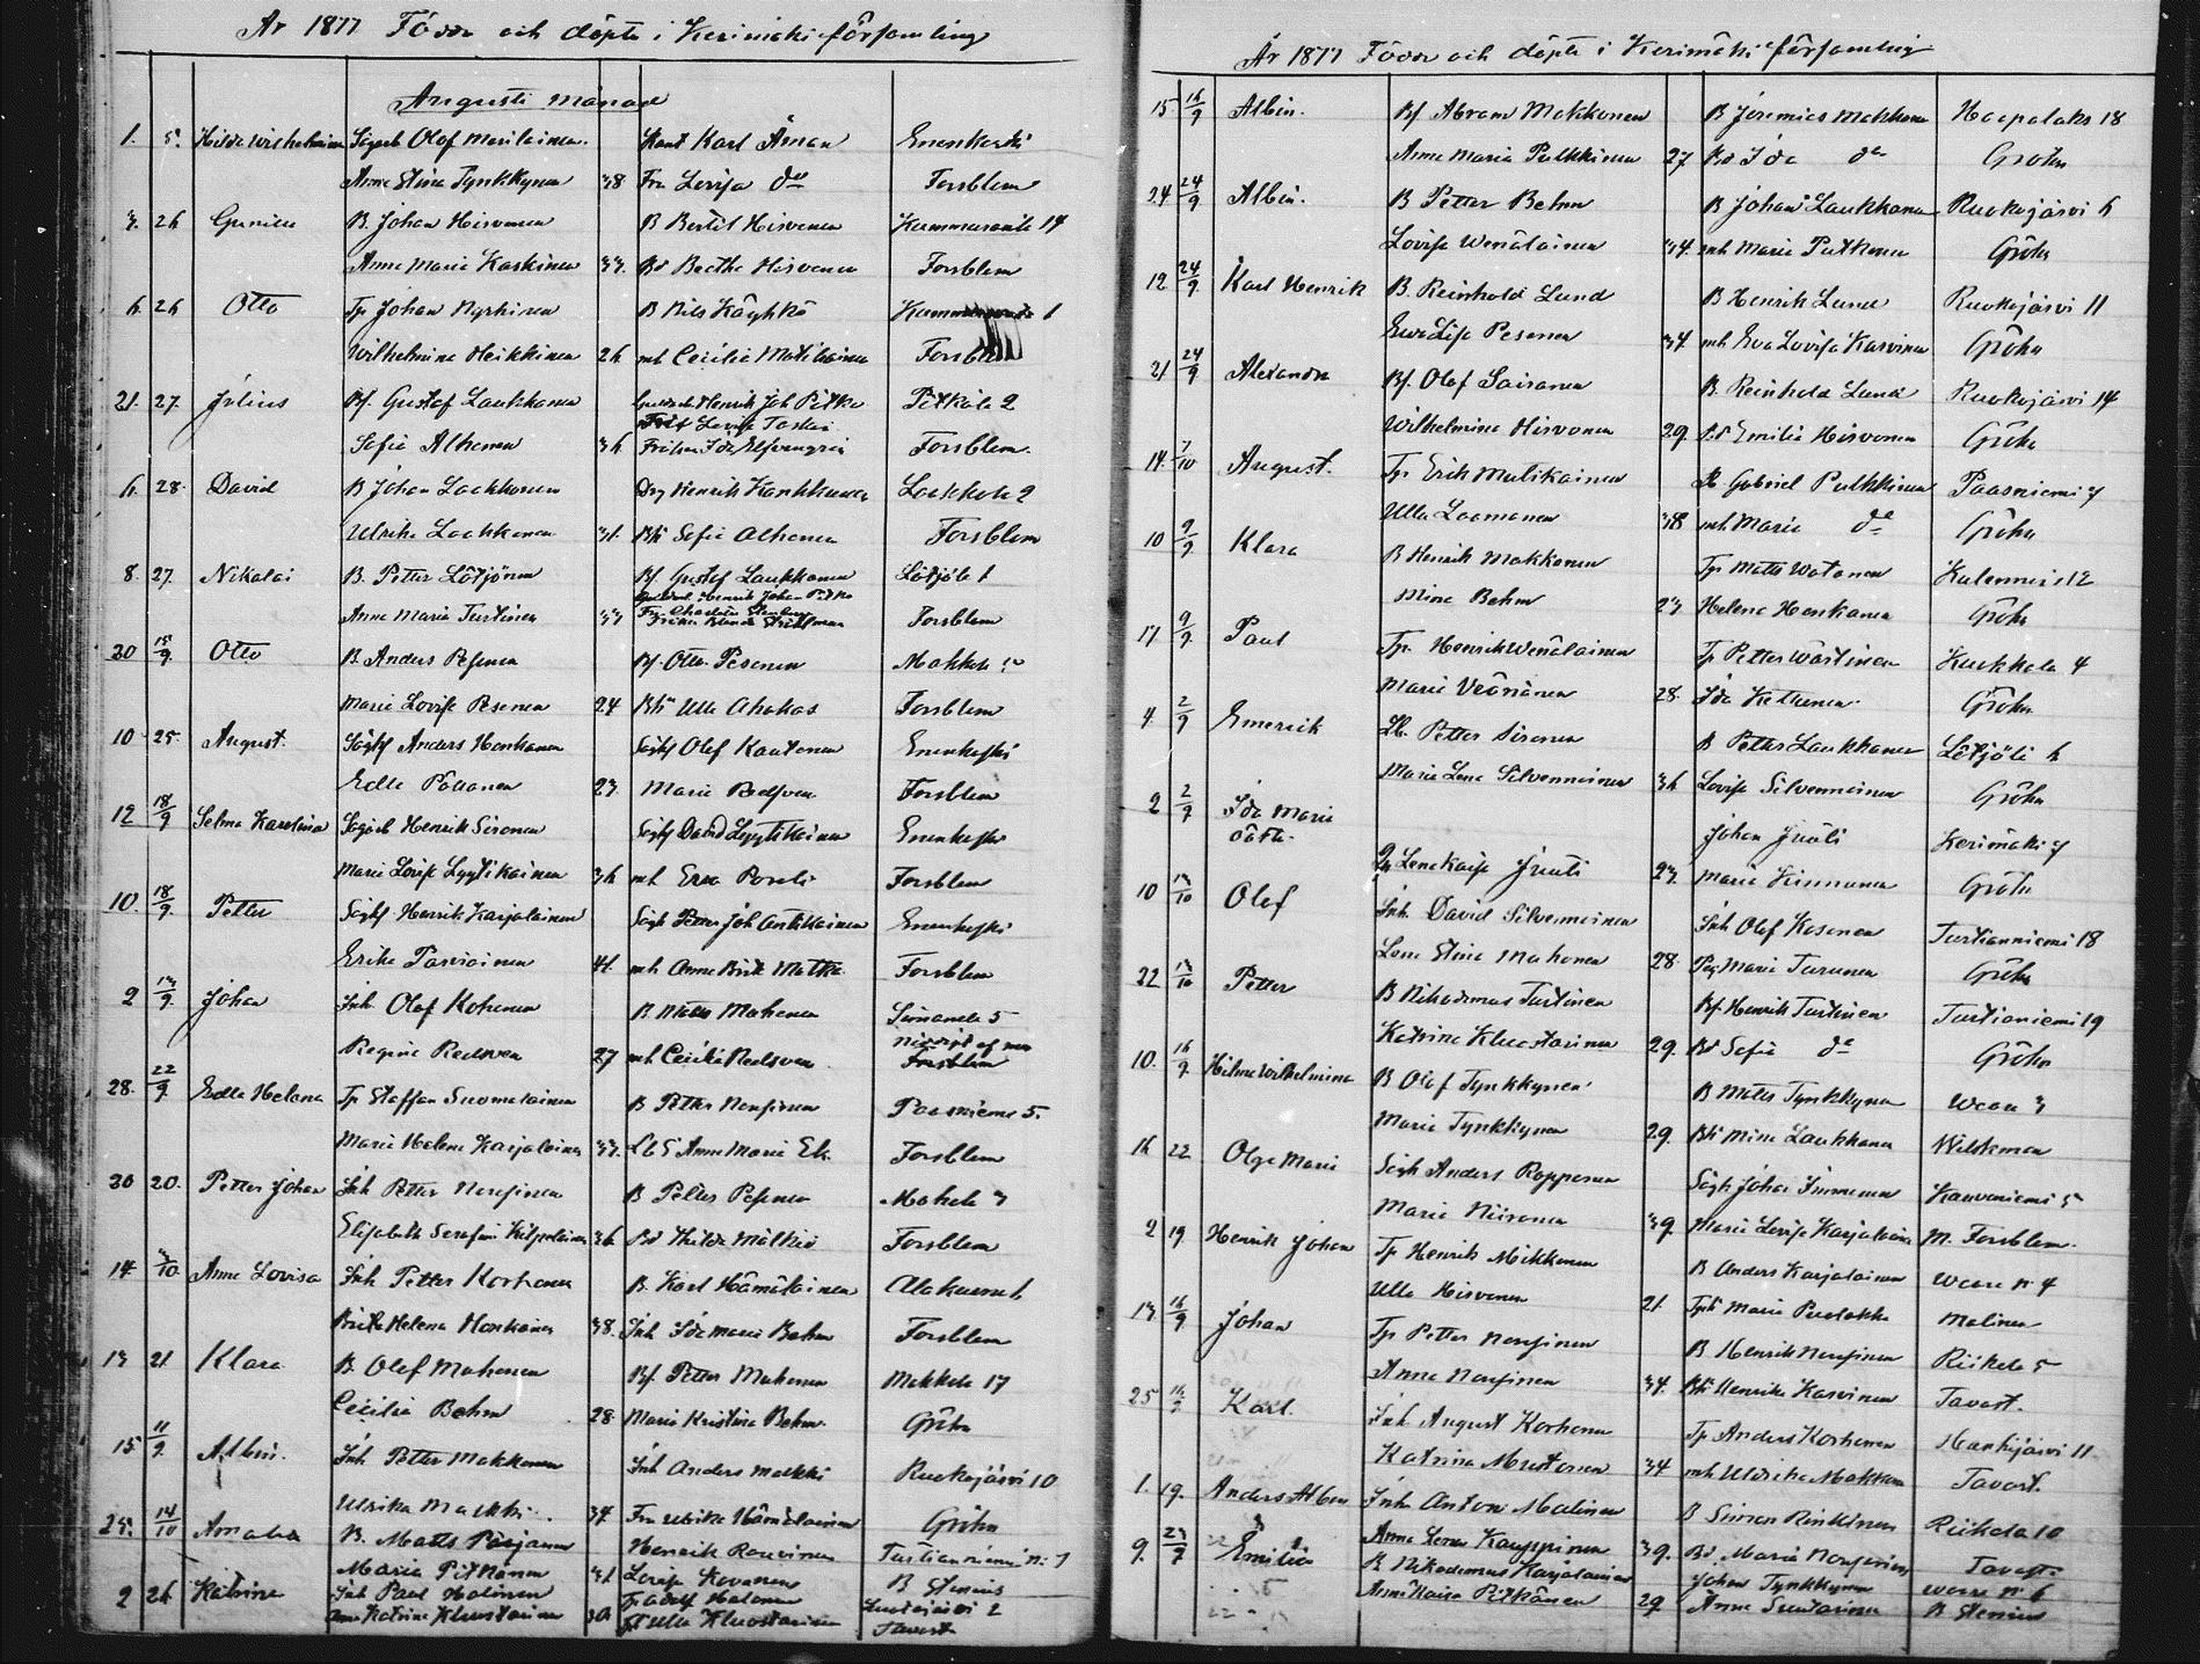 År 1877 Födde och döpte i Kerimäki församling
Augusti månad
1. 5. Hilda Wilhelmina Olof Muilainen. Karl Åman Enonkoski
Anna Stina Tynkkynen 38 Fru Lovisa do Forsblom
3. 26 Gunilla B. Johan Hirvonen B Bertil Hirvonen Kummunmäki 14
Anna Maria Kaskinen 33. Bd Beatha Hirvonen Forsblom
6. 26 Otto Tp Johan Nyrhinen B Nils Käyhkö 1
Wilhelmina Heikkinen 26 mh Cecilia Matilainen Forsblom
21. 27. Julius Bf. Gustaf Laukkanen Henrik Joh Pitko Pitkälä 2
Lovisa Toskai
Sofia Alhonen 36 Fröken Ida Elfvengren Forsblom.
6. 28. David B Johan Laakkonen Drg Henrik Kankkunen Laukkala 2
Ulrika Laakkonen 31. Bh Sofia Alhonen Forsblom
8. 27. Nikolai B. Petter Lötjönen Bf. Gustaf Laukkanen Lötjölä 1
Henrik Johan Pitko
Anna Maria Turtinen 33 Fröken Blenda Forsblom
20 15/9. Otto B. Anders Pesonen Bf. Otto Pesonen Makkola 5
Maria Lovisa Pesonen 24 Bh Ulla Ahokas Forsblom
10 25. August. Anders Honkanen Olof Kautonen Enonkoski
Edla Pöllänen 23. Maria Redsven Forsblom
12 18/9 Selma Karolina Henrik Sironen David Lyytikäinen Enonkoski
Maria Lovisa Lyytikäinen 36 mh Eva Forsblom
10. 18/9. Petter Henrik Karjalainen Petter Joh Antikainen Enonkoski
Erika Parviainen 41. mh Anna Brita Matka Forsblom
2 13/9. Johan Inh Olof Kohonen B. Matts Mahonen Simanala 5
Regina Redsven 27 mh Cecilia Redsven Forsblom
28. 22/9. Edla Helena Tp Staffan Suomalainen B Petter Nousiainen Paasniemi 5.
Maria Helena Karjalainen 33. Anna Maria Ek Forsblom
20 20. Petter Johan Inh Petter Nousiainen B Petter Pesonen Makkola 3
Elisabeth Serafina Kilpeläinen 36 Bd Hilda Mälkiä Forsblom
14. 3/10. Anna Lovisa Inh Petter Korhonen B. Karl Hämäläinen
Brita Helena Honkanen 38. Inh Ida Maria Behm Forsblom
13 21. Klara B. Olof Mahonen Bf. Petter Mahonen Makkola 17
Cecilia Behm 28. Maria Kristina Behm. Gröhn
15 11/9. Albin. Inh Petter Makkonen Inh Anders Malkki Ruokojärvi 10
Ulrika Malkki 34. Fru Ulrika Hämäläinen Gröhn
25. 14/10 Amalia B. Matts Parjanen Henrik Rouvinen Turtianniemi N: 7
Maria Pitkänen 31 Lovisa Kovanen B Stenius
2 26 Katrina Inh Paul Halinen Adolf Halonen 2
Anna Katrina Kluostarinen 30. Ulla Kluostarinen Tavast

År 1877 Födde och döpte i Kerimäki församling
15. 16/9 Albin. Bf. Abram Makkonen B Jeremias Makkonen Haapalaks 18
Anna Maria Pulkkinen 27 Bd Ida do Gröhn
24. 24/9 Albin. B Petter Behm B Johan Laukkanen Ruokojärvi 6
Lovisa Wenäläinen 34. mh Maria Putkonen Gröhn
12 24/9. Karl Henrik B. Reinhold Lund B Henrik Lund Ruokojärvi 11
Eva Lisa Pesonen 34. mh Eva Lovisa Karvinen Gröhn
21 24/9. Alexandra Bf. Olof Sairanen B. Reinhold Lund Ruokojärvi 14
Wilhelmina Hirvonen 29. Bd Emilia Hirvonen Gröhn
14. 7/10 August. Tp. Erik Mulikainen B. Gabriel Pulkkinen Paasniemi 7
Ulla Laamanen 38 mh Maria do Gröhn
10 9/9. Klara B Henrik Makkonen Tp Matts Watanen Kulenniemi 12
Mina Behm 23 Helena Honkanen Gröhn
17 9/9. Paul Tp. Henrik Wenäläinen Tp Petter Wärtinen Kuokkala 4
Maria Väänänen 28. Ida Kettunen Gröhn
4. 2/9 Emerik Lb. Petter Sironen B Petter Laukkanen Lötjölä 6
Maria Lena Silvennoinen 36 Lovisa Silvennoinen Gröhn
2 2/9 Ida Maria oäkta. Johan Juuti Kerimäki 7
Lena Kaisa Juuti 23. Maria Kinnunen Gröhn
10 13/10 Olof Inh. David Silvennoinen Inh Olof Kosonen Turtianniemi 18
Lena Stina Mahonen 28. Pig Maria Turunen Gröhn
22 13/10 Petter B Nikodemus Turtinen Bf. Henrik Turtinen Turtianiemi 19
Katrina Kluostarinen 29. Bd Sofia do Gröhn
10. 16/9. Hilma Wilhelmina B Olof Tynkkynen B Matts Tynkkynen Waara 3
Maria Tynkkynen 29. Bh Mina Laukkanen Wilskman
16 22 Olga Maria Anders Ropponen Johan Immonen Kauvoniemi 5
Maria Niironen 39. Maria Lovisa Karjalainen M. Forsblom.
2 19 Henrik Johan Tp Henrik Mikkonen B Anders Karjalainen Waara N: 4
Ulla Hirvonen 21. Maria Puolakka Malinen
13 16/9. Johan Tp Petter Nousiainen B Henrik Nousiainen Riikola 5
Anna Nousiainen 34. Bh Henrika Karvinen Tavast.
25 Karl. Inh August Korhonen Tp Anders Korhonen Hankijärvi 11
Katrina Mustonen 34 mh Ulrika Makkonen Tavast.
1. 19. Anders Albin Inh Anton Malinen B Simon Rinkinen Riikola 10
Anna Lena Kauppinen 39. Bd. Maria Nousiainen Tavast.
9. Emilia B Nikodemus Karjalainen Johan Tynkkynen Waara N: 6
Anna Kaisa Pitkänen 29 Anna Suutarinen B Stenius